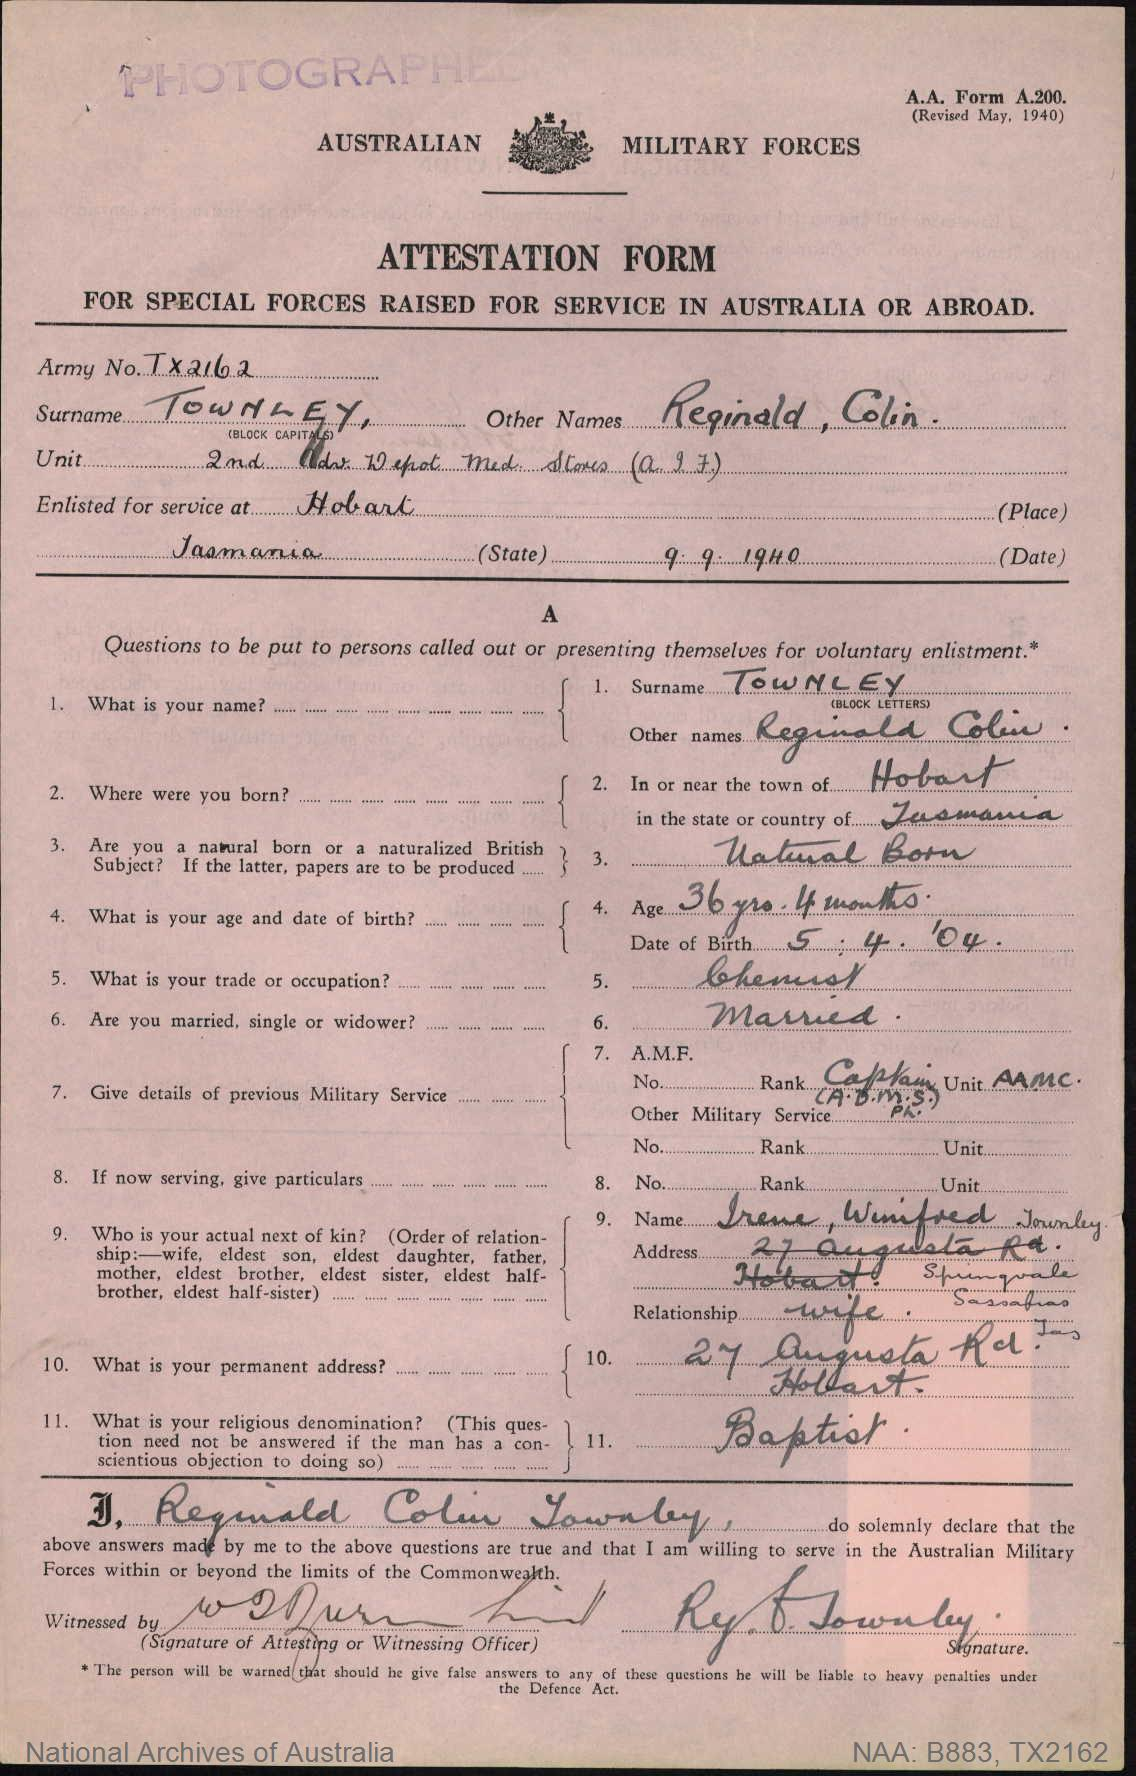 PHOTOGRAPHED
A.A. Form A.200.
(Revised May, 1940)
AUSTRALIAN MILITARY FORCES
ATTESTATION FORM
FOR SPECIAL FORCES RAISED FOR SERVICE IN AUSTRALIA OR ABROAD.
Army No. TX2162
Surname TOWNLEY, Other Names Reginald, Colin.
(BLOCK CAPITALS)
Unit 2nd Adv. Depot Med. Stores (A.I.F.)
Enlisted for service at Hobart (Place)
Tasmania (State) 9. 9. 1940 (Date)
A
Questions to be put to persons called out or presenting themselves for voluntary enlistment.*
1. What is your name? 1. Surname TOWNLEY
(BLOCK LETTERS)
Other names Reginald Colin.
2. Where were you born? 2. In or near the town of Hobart
in the state or country of Tasmania
3. Are you a natural born or a naturalized British
Subject? If the latter, papers are to be produced 3. Natural Born
4. What is your age and date of birth? 4. Age 36 yrs. 4 months.
Date of Birth 5. 4. '04.
5. What is your trade or occupation? 5. Chemist
6. Are you married, single or widower? 6. Married.
7. Give details of previous Military Service 7. A.M.F.
No. Rank Captain Unit AAMC.
(A.D.M.S.)
Other Military Service Ph.
No. Rank Unit
8. If now serving, give particulars 8. No. Rank Unit
9. Who is your actual next of kin? (Order of relation-
ship:—wife, eldest son, eldest daughter, father,
mother, eldest brother, eldest sister, eldest half-
brother, eldest half-sister) 9. Name Irene, Winifred Townley.
Address 27 Augusta Rd.
Hobart. Springvale
Sassafras
Tas
Relationship wife.
10. What is your permanent address? 10. 27 Augusta Rd.
Hobart.
11. What is your religious denomination? (This ques-
tion need not be answered if the man has a con-
scientious objection to doing so) 11. Baptist.
I, Reginald Colin Townley, do solemnly declare that the
above answers made by me to the above questions are true and that I am willing to serve in the Australian Military
Forces within or beyond the limits of the Commonwealth.
Witnessed by Reg. C. Townley.
(Signature of Attesting or Witnessing Officer) Signature.
* The person will be warned that should he give false answers to any of these questions he will be liable to heavy penalties under
the Defence Act.
National Archives of Australia NAA: B883, TX2162